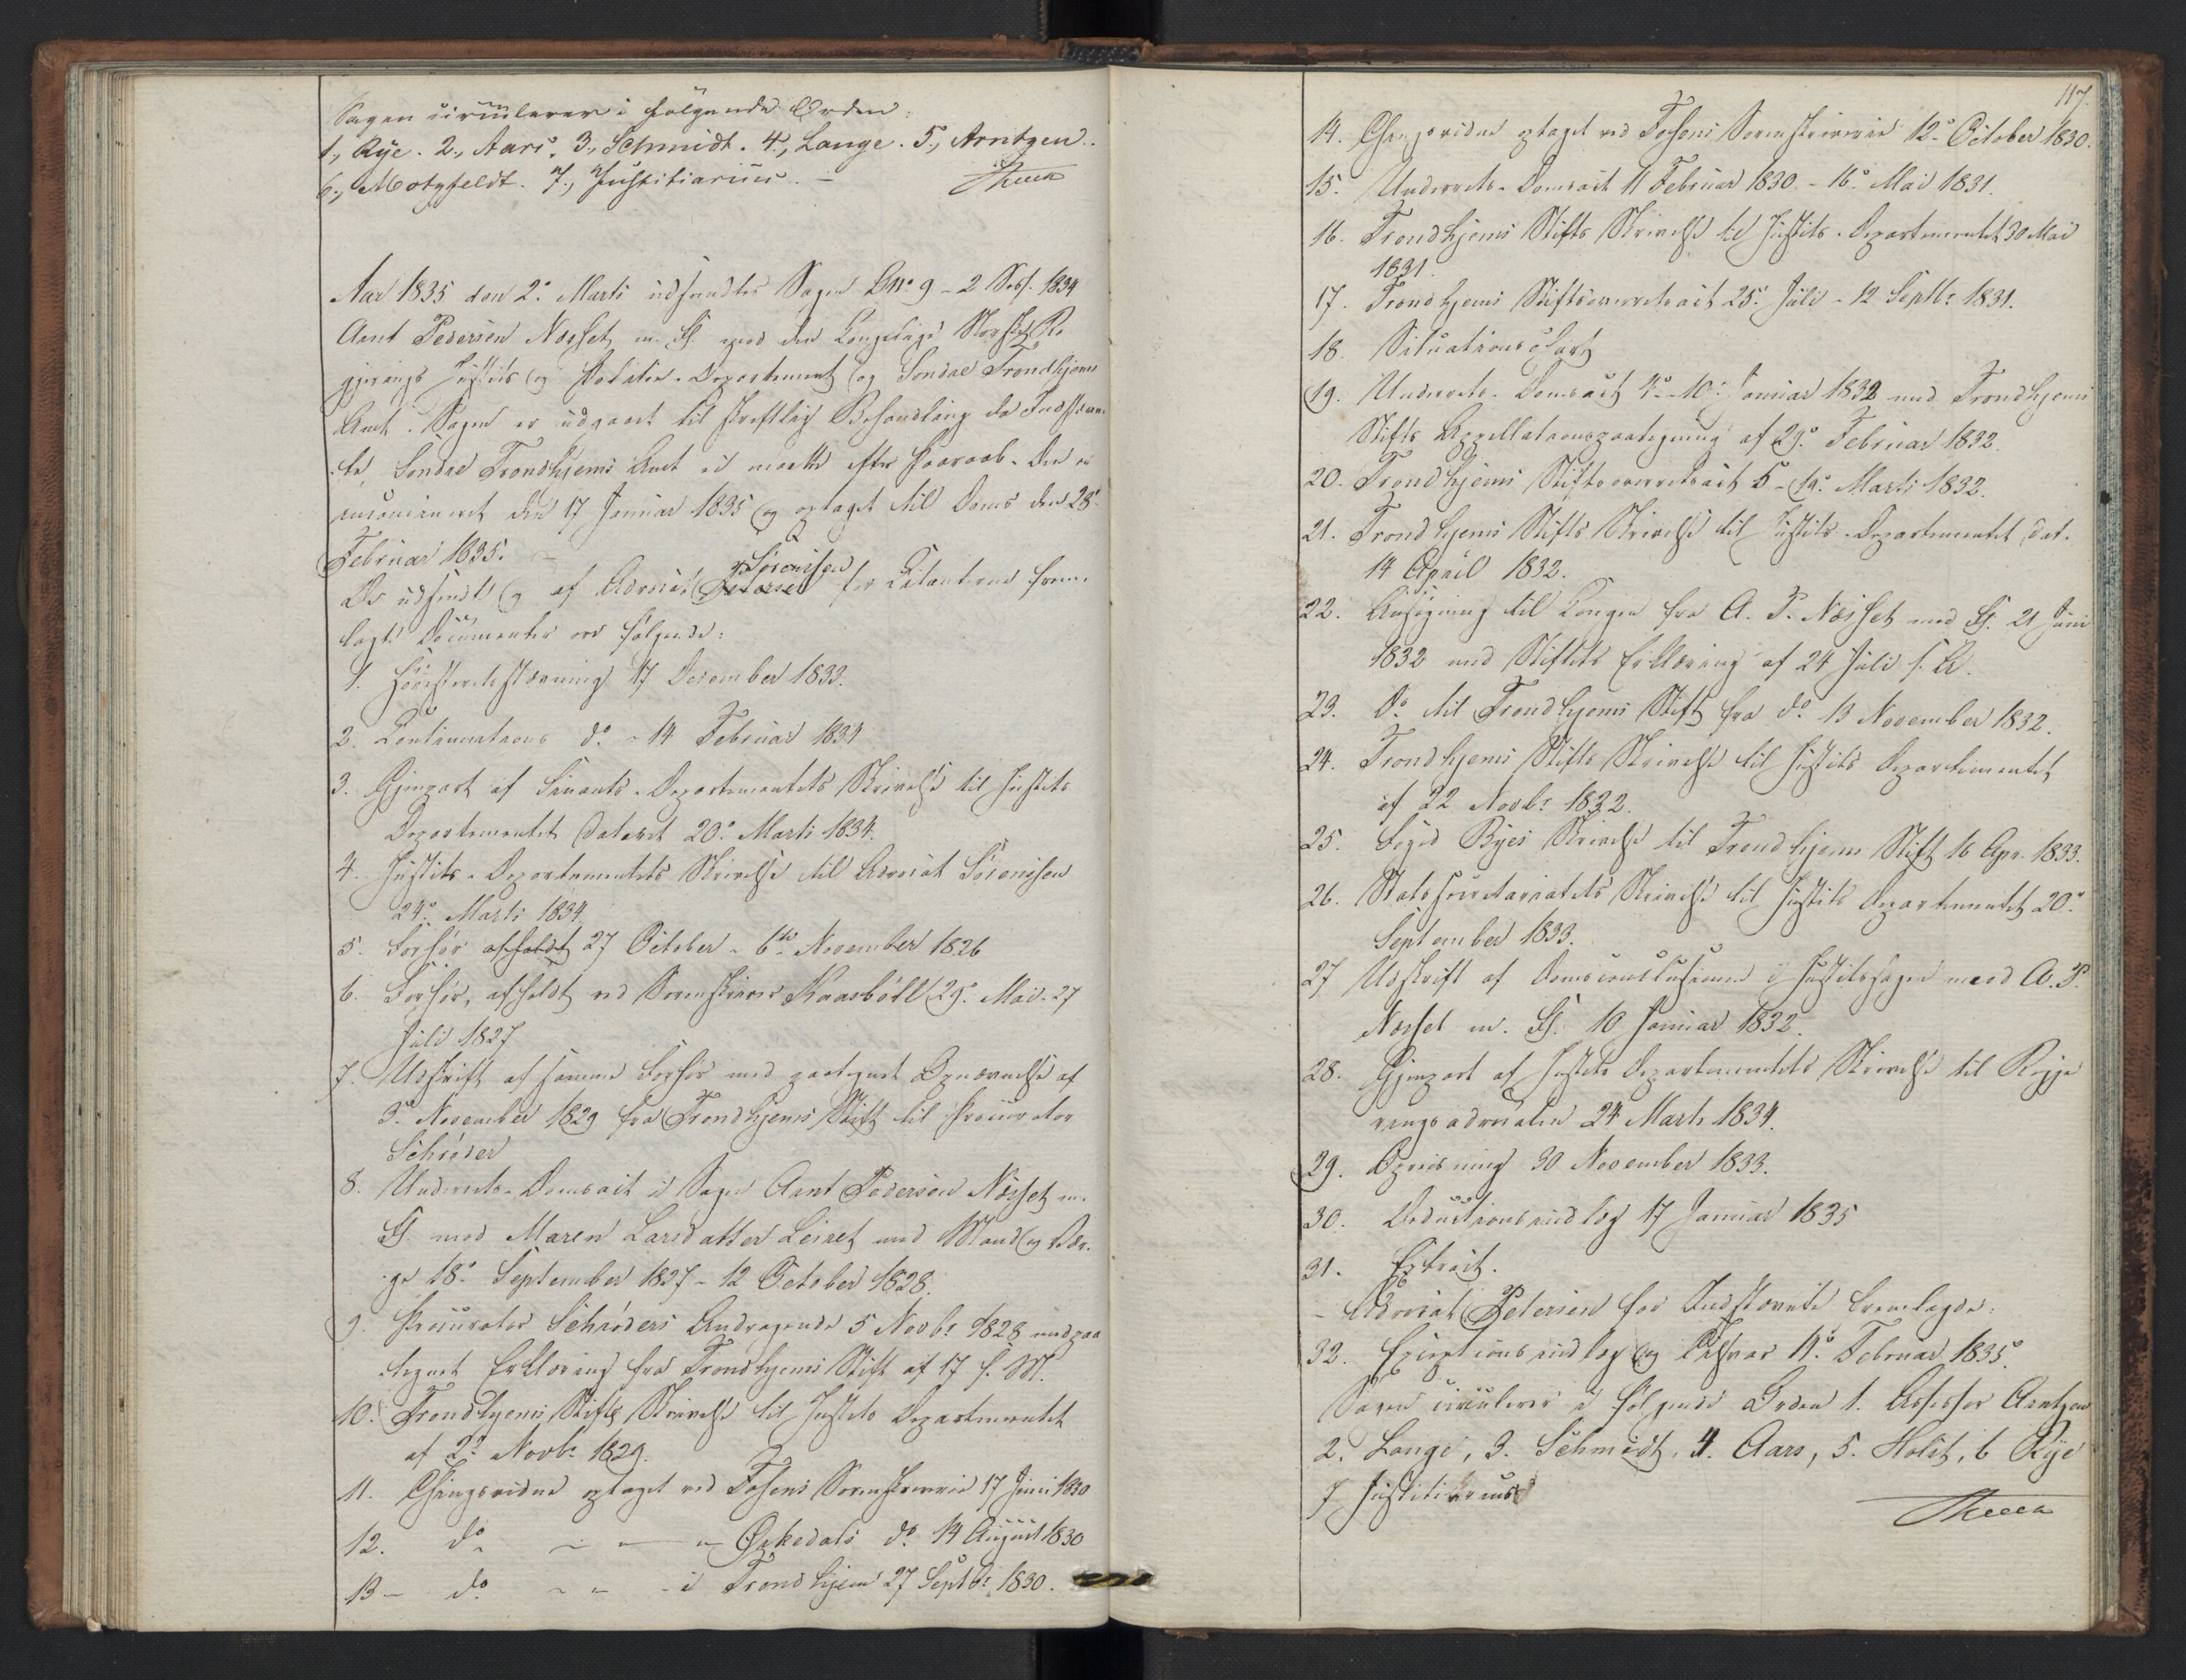 Sagen circulerer i følgende Orden:
1, Rÿe. 2, Aars. 3, Schmidt. 4, Lange. 5, Arntzen.
6, Motzfeldt. 7, Justitiarius. –
Aar 1835 den 2. Marti udsendtes Sagen L No 9 – 2 Sess. 1834
Arnt Pedersen Næsset m. Fl. mod den Kongelige Norske Re
gjerings Justits og Politie-Departement og Søndre Trondhjems
Amt. Sagen er udgaaet til skriftlig Behandling da Indstævn
te, Søndre Trondhjems Amt ei mødte efter Paaraab. Den er
incamineret den 17 Januar 1835 og optaget til Doms den 28de
Februar 1835. –
Sörenssen
De udsendte og af Advocat Petersen for Citanterne frem-
lagte Documenter ere følgende:
1. Høiesteretsstævning 17 December 1833.
2. Continuations do – 14 Februar 1834
3. Gjenpart af Finants-Departementets Skrivelse til Justits
Departementet dateret 20de Marti 1834.
4. Justits-Departementets Skrivelse til Advocat Sörenssen
24de Marti 1834.
5. Forhör afholdt 27 October – 6te November 1826
6. Forhör, afholdt ved Sorenskriver Kaasböll 29de Mai – 27
Juli 1827
7. Udskrift af samme Forhör med paategnet Opnævnelse af
3de November 1829 fra Trondhjems Stift til Procurator
Schrøder
8. Underrets-Domsact i Sagen Arnt Pedersen Næsset m.
Fl. mod Maren Larsdatter Leiret med Mand og Vær-
ge 18de September 1827 – 12 October 1828.
9. Procurator Schröders Andragende 5 Novbr 1828 med paa
tegnet Erklæring fra Trondhjems Stift af 17 s. M.
10. Trondhjems Stifts Skrivelse til Justits Departementet
af 2de Novbr 1829.
11. Thingsvidne optaget ved Fosens Sorenskriverie 17 Juni 1830
12. do – – – Ørkedals do 14 August 1830
13 – do – – – i Trondhjem 27 Septbr 1830.
117.
14. Thingsvidne optaget ved Fosens Sorenskriverie 12te October 1830.
15. Underrets-Domsact 11 Februar 1830 – 16de Mai 1831.
16. Trondhjems Stifts Skrivelse til Justits-Departementet 30 Mai
1831.
17. Trondhjems Stiftsoverretsact 25de Juli – 12 Septbr 1831.
18. Situationscart
19. Underrets-Domsact – 10de Januar 1832 med Trondhjems
Stifts Appellationspaategning af 29de Februar 1832.
20. Trondhjems Stiftsoverretsact 5 – 19de Marti 1832.
21. Trondhjems Stifts Skrivelse til Justits-Departementet dat.
14 April 1832.
22. Ansøgning til Kongen fra A. P. Næsset med Fl. 21 Juni
1832 med Stiftets Erklæring af 24 Juli s. A.
23. Do til Trondhjems Stift fra do 13 November 1832.
24. Trondhjems Stifts Skrivelse til Justits Departementet
af 22 Novbr 1832.
25. Foged Ryes Skrivelse til Trondhjems Stift 16 Apr. 1833.
26. Statssecretariatets Skrivelse til Justits Departementet 20de
September 1833.
27 Udskrift af Domsconclusionen i Justitssagen mod A. P.
Næsset m. Fl. 10 Januar 1832.
28. Gjenpart af Justits Departementets Skrivelse til Regje
ringsadvocaten 24 Marti 1834.
29. Opreisning 30 November 1833.
30. Deductionsindlæg 17 Januar 1835
31. Extract.
– Advocat Petersen for Indstævnte fremlagde:
32. Exceptionsindlæg og Tilsvar 11te Februar 1835.
Sagen circulerer i følgende Orden 1. Assessor Arntzen
2. Lange, 3. Schmidt, 4. Aars, 5. Holst, 6 Rÿe
7 Justitiarius